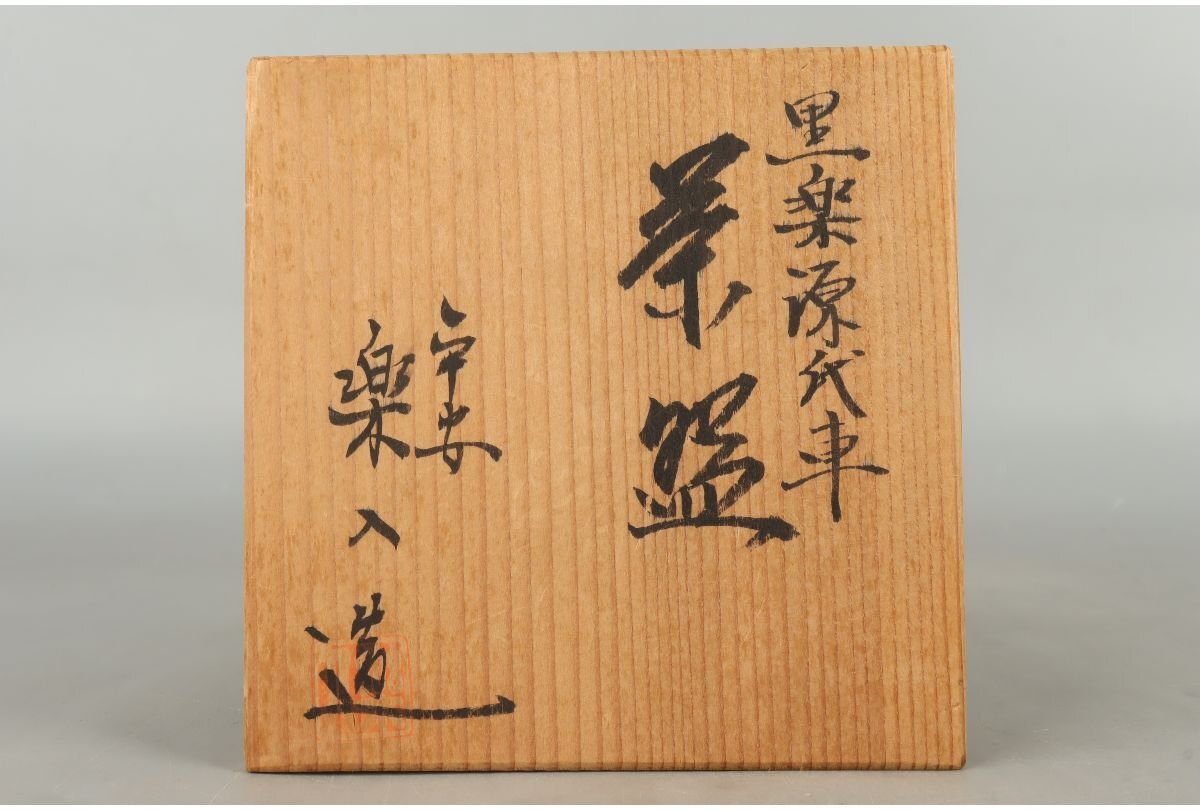 黒楽源氏車
茶盌
平安
楽入
造